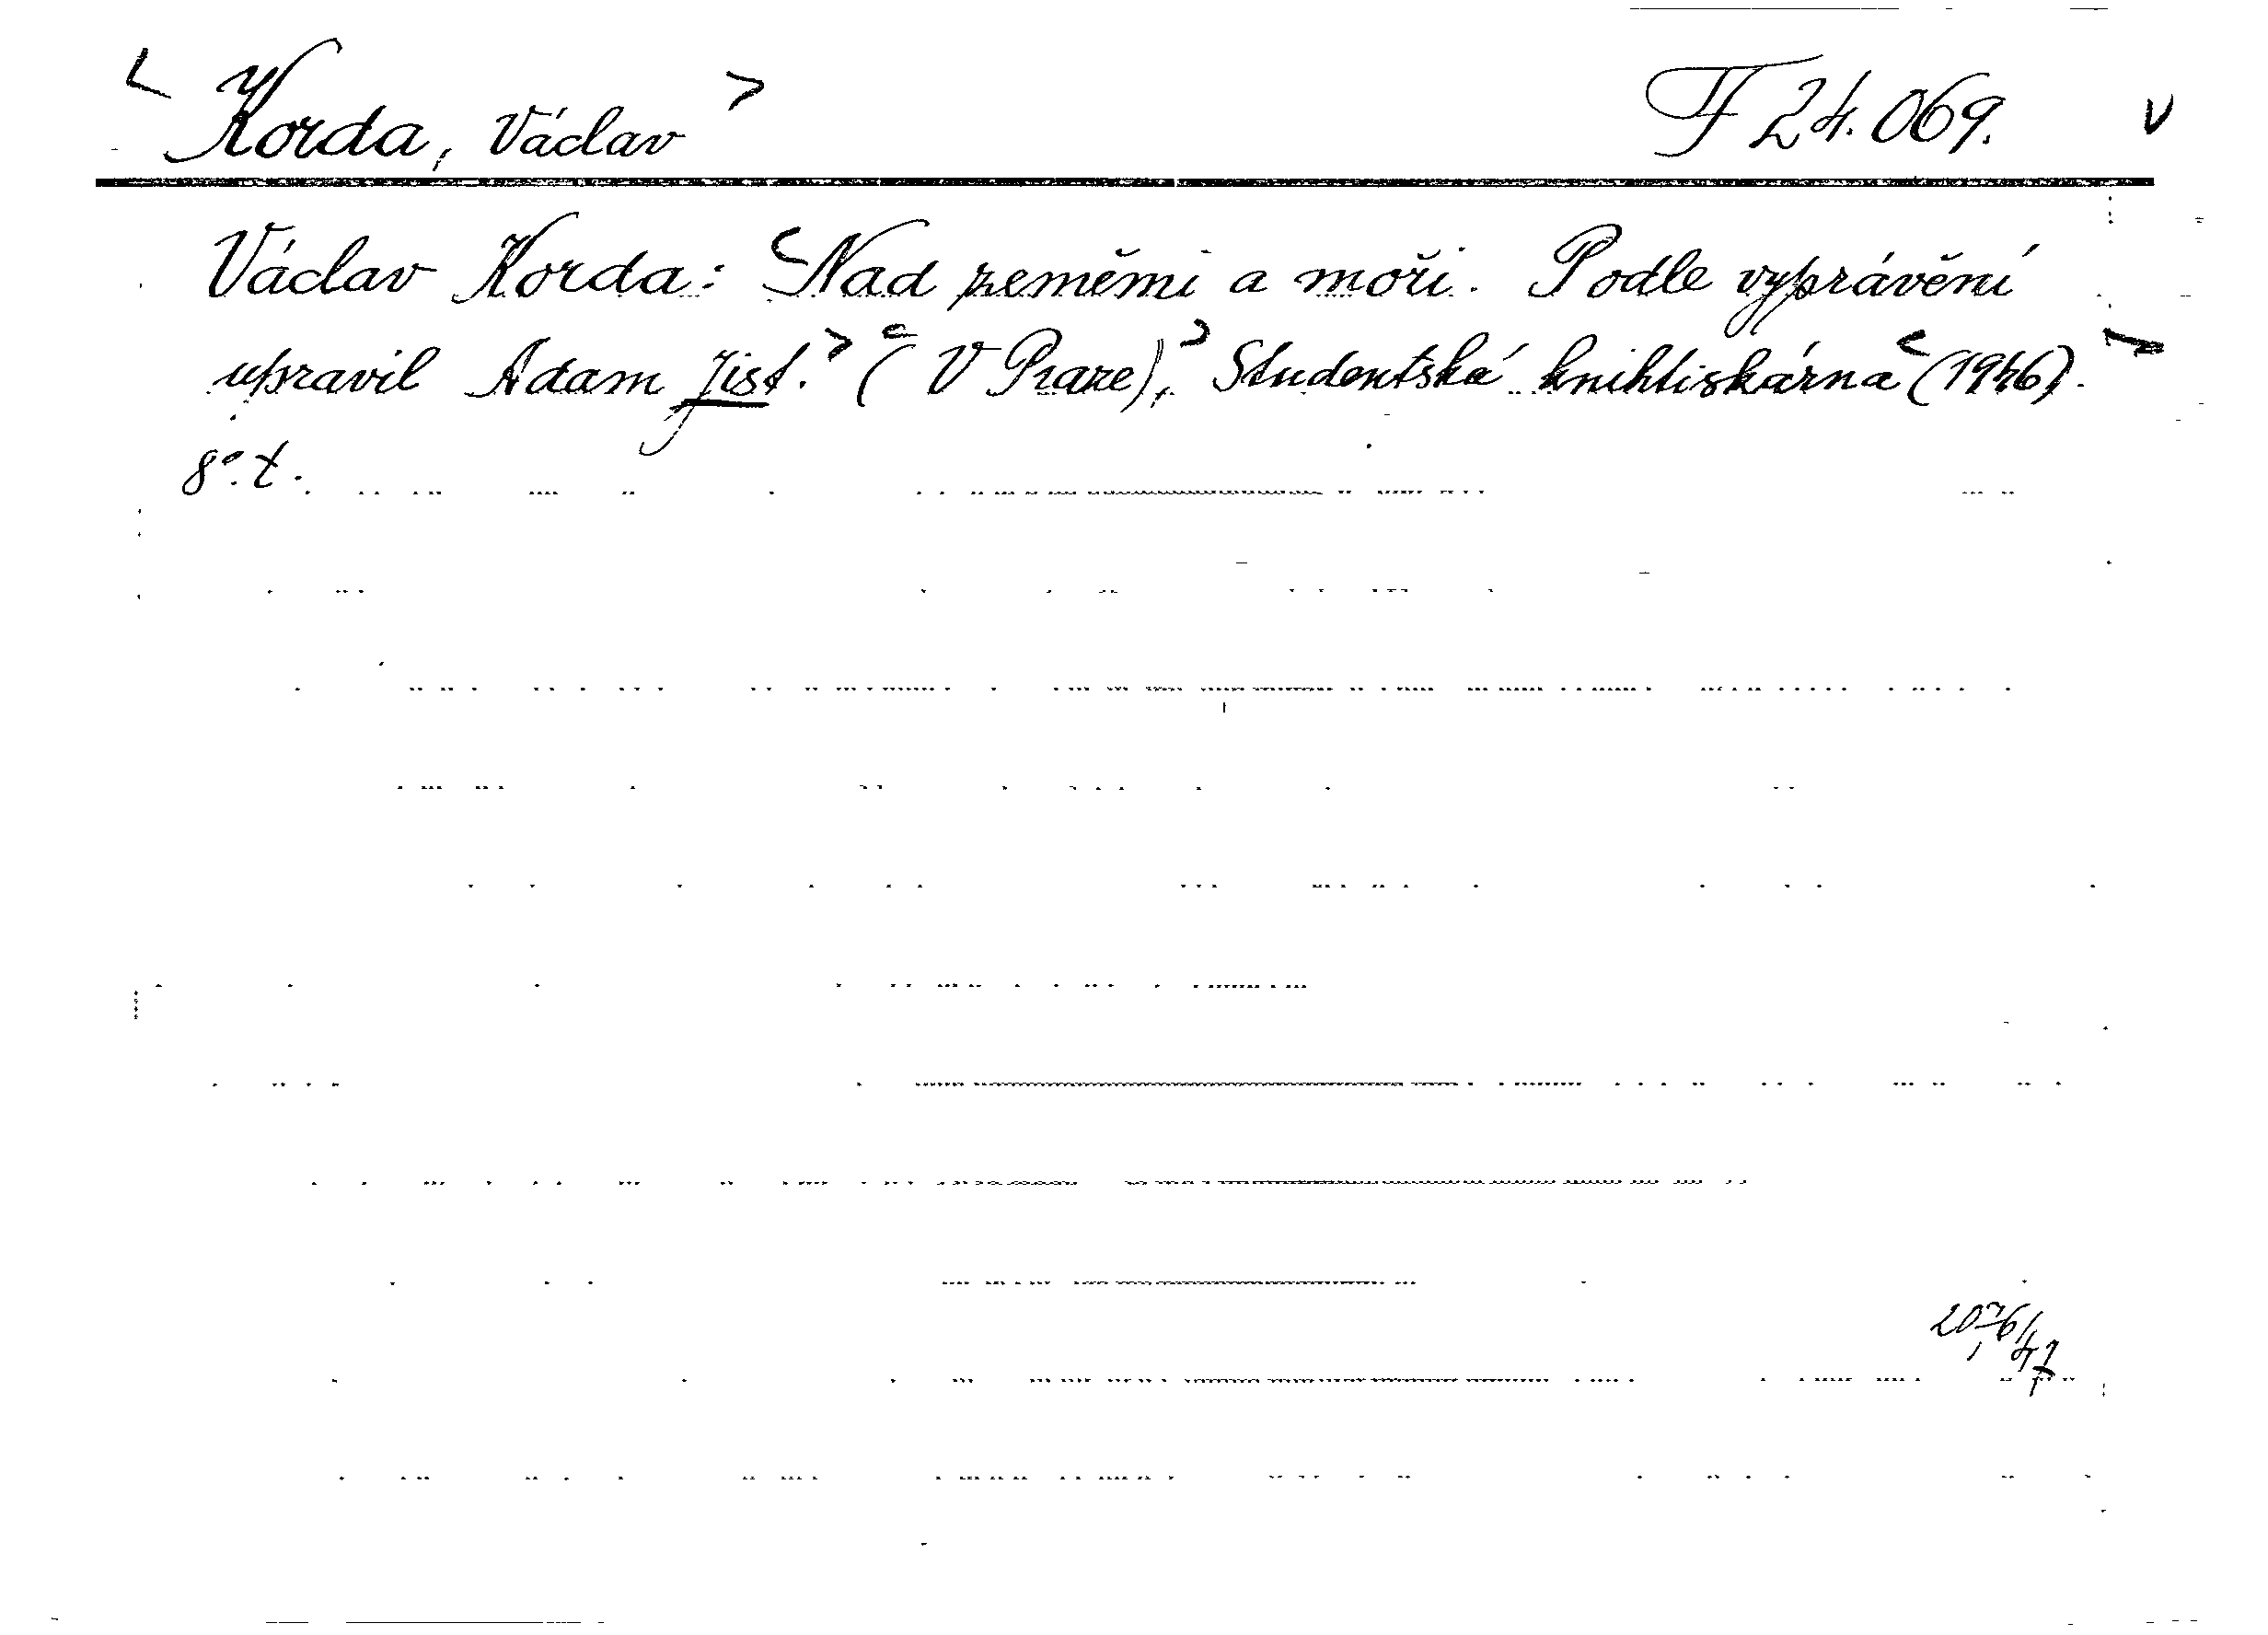 < Korda, Václav > F 24.069. v
Václav Korda: <Nad zeměmi a moři. Podle vyprávění
upravil Adam Jist.> <(V Praze),> Studentská knihtiskárna <(1946).>
8°. t.
2076/47